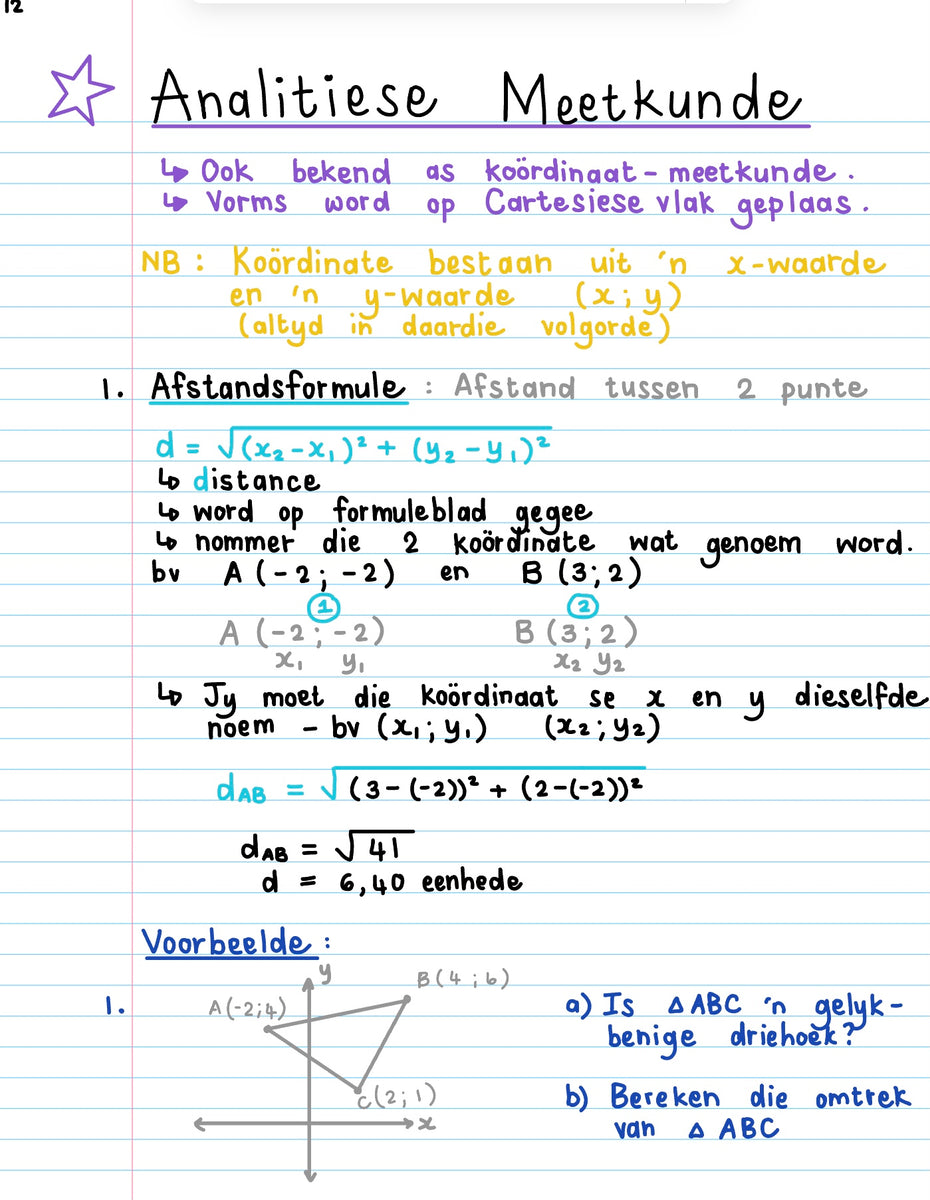 12
Analitiese Meetkunde
↳ Ook bekend as koördinaat-meetkunde.
↳ Vorms word op Cartesiese vlak geplaas.
NB: Koördinate bestaan uit 'n x-waarde
en 'n y-waarde (x; y)
(altyd in daardie volgorde)
1. Afstandsformule : Afstand tussen 2 punte
d = √(x₂-x₁)² + (y₂-y₁)²
↳ distance
↳ word op formuleblad gegee
↳ nommer die 2 koördinate wat genoem word.
bv A (-2; -2) en B (3; 2)
1 2
A (-2; -2) B (3; 2)
x₁ y₁ x₂ y₂
↳ Jy moet die koördinaat se x en y dieselfde
noem - bv (x₁; y₁) (x₂; y₂)
dAB = √(3-(-2))² + (2-(-2))²
dAB = √41
d = 6,40 eenhede
Voorbeelde:
1.
y
B(4;6)
A(-2;4)
C(2;1)
x
a) Is △ABC 'n gelyk-
benige driehoek?
b) Bereken die omtrek
van △ ABC